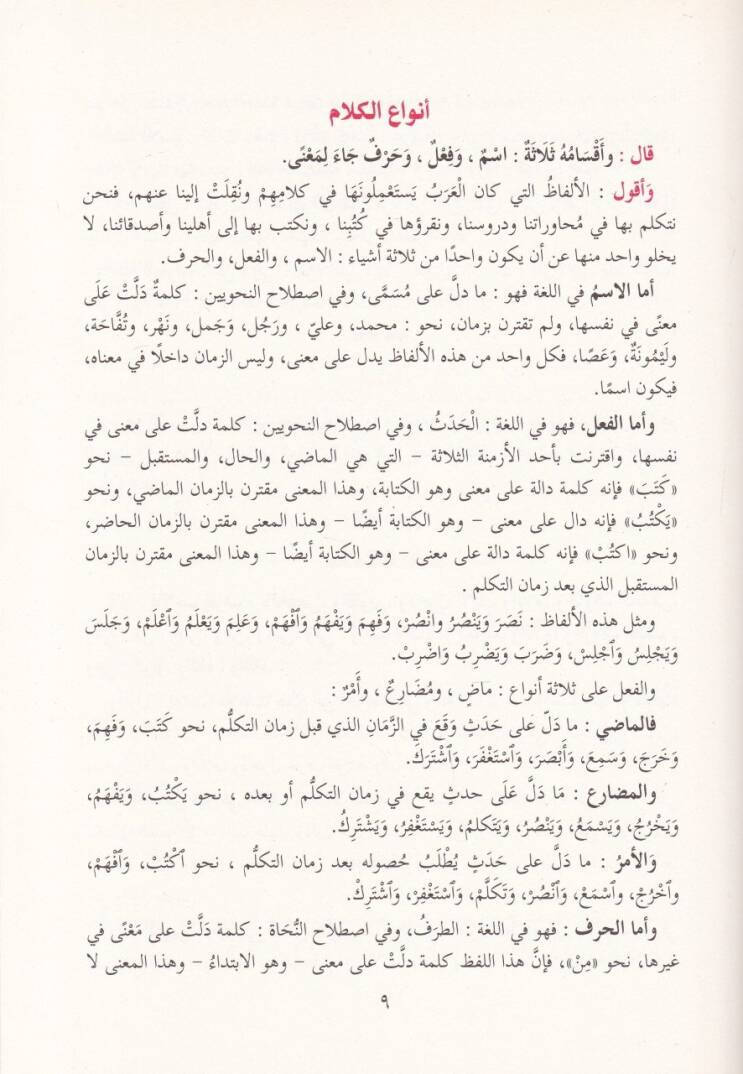 أنواع الكلام
قال : وأَقْسَامُهُ ثَلَاثَةٌ : اسْمٌ ، وَفِعْلٌ ، وَحَرْفٌ جَاءَ لِمَعْنًى.
وَأقول : الألفاظُ التي كان الْعَرَبُ يَستَعْمِلُونَهَا في كلامِهِمْ ونُقِلَتْ إلينا عنهم، فنحن
نتكلم بها في مُحاوراتنا ودروسنا، ونقرؤها في كُتُبِنا ، ونكتب بها إلى أهلينا وأصدقائنا، لا
يخلو واحد منها عن أن يكون واحدًا من ثلاثة أشياء : الاسم ، والفعل، والحرف.
أما الاسمُ في اللغة فهو : ما دلَّ على مُسَمَّى، وفي اصطلاح النحويين : كلمةٌ دَلَّتْ عَلَى
معنًى في نفسها، ولم تقترن بزمان، نحو : محمد، وعليّ ، ورَجُل، وَجَمل، ونَهْر، وتُفَّاحَة،
ولَيْمُونَةٌ، وَعَصًا، فكل واحد من هذه الألفاظ يدل على معنى، وليس الزمان داخلًا في معناه،
فيكون اسمًا.
وأما الفعل، فهو في اللغة : الْحَدَثُ ، وفي اصطلاح النحويين : كلمة دلَّتْ على معنى في
نفسها، واقترنت بأحد الأزمنة الثلاثة – التي هي الماضي، والحال، والمستقبل – نحو
«كَتَبَ» فإنه كلمة دالة على معنى وهو الكتابة، وهذا المعنى مقترن بالزمان الماضي، ونحو
«يَكْتُبُ» فإنه دال على معنى – وهو الكتابة أيضًا – وهذا المعنى مقترن بالزمان الحاضر،
ونحو «اكتُبْ» فإنه كلمة دالة على معنى – وهو الكتابة أيضًا – وهذا المعنى مقترن بالزمان
المستقبل الذي بعد زمان التكلم .
ومثل هذه الألفاظ : نَصَرَ وَيَنْصُرُ وانْصُرْ، وَفَهِمَ وَيَفْهَمُ وَٱفْهَمْ، وَعَلِمَ وَيَعْلَمُ وَٱعْلَمْ، وَجَلَسَ
وَيَجْلِسُ وَٱجْلِسْ، وَضَرَبَ وَيَضْرِبُ وَاضْرِبْ.
والفعل على ثلاثة أنواع : ماضٍ ، ومُضَارِعٌ ، وأَمْرٌ :
فالماضي : ما دَلّ على حَدَثٍ وَقَعَ في الزَّمَانِ الذي قبل زمان التكلُّم، نحو كَتَبَ، وَفَهِمَ،
وَخَرَجَ، وَسَمِعَ، وَأَبْصَرَ، وَٱسْتَغْفَرَ، وَٱشْتَرَكَ.
والمضارع : مَا دَلَّ عَلَى حدثٍ يقع في زمان التكلُّم أو بعده ، نحو يَكْتُبُ، وَيَفْهَمُ،
وَيَخْرُجُ، وَيَسْمَعُ، وَيَنْصُرُ، وَيَتَكلمُ، وَيَسْتَغْفِرُ، وَيَشْتَرِكُ.
وَالأمرُ : ما دَلَّ على حَدَثٍ يُطْلَبُ حُصوله بعد زمان التكلُّم ، نحو ٱكْتُبْ، وَٱفْهَمْ،
وٱخْرُجْ، وٱسْمَعْ، وَٱنْصُرْ، وَتَكَلَّمْ، وَٱسْتَغْفِرْ، وَٱشْتَرِكْ.
وأما الحرف : فهو في اللغة : الطرَفُ، وفي اصطلاح النُّحَاة : كلمة دَلَّتْ على مَعْنًى في
غيرها، نحو «مِنْ»، فإنَّ هذا اللفظ كلمة دلَّتْ على معنى – وهو الابتداءُ – وهذا المعنى لا
٩